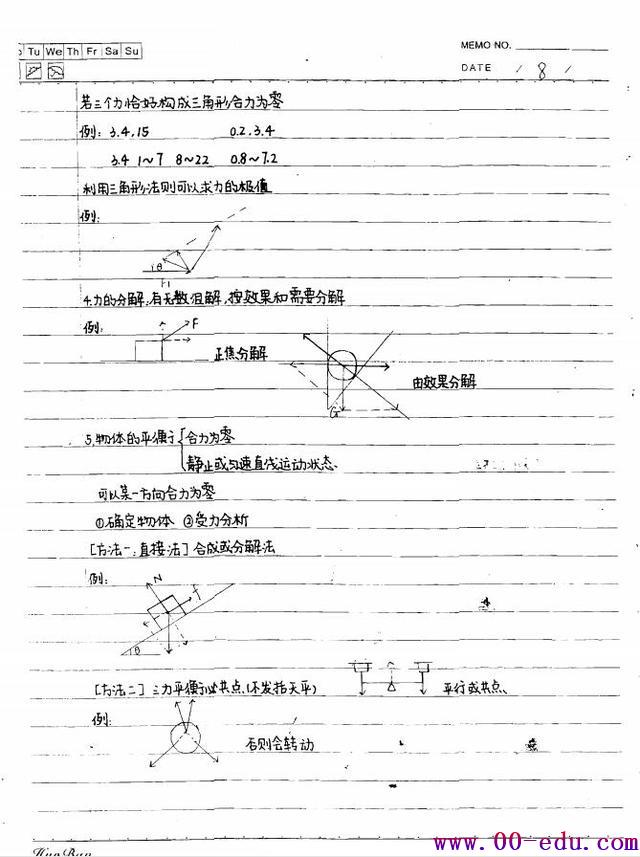 Tu We Th Fr Sa Su
MEMO NO.
DATE / 8 /
若三个力恰好构成三角形合力为零
例: 3.4,15 0.2,3.4
3.4 1~7 8~22 0.8~7.2
利用三角形法则可以求力的极值
例:
θ
F1
4.力的分解:有无数组解,按效果和需要分解
例:
F
正焦分解
由效果分解
G
5.物体的平衡 合力为零
静止或匀速直线运动状态.
可以某一方向合力为零
①确定物体 ②受力分析
[方法一:直接法] 合成或分解法
例:
N
f
θ
[方法二] 三力平衡必共点.(不发指天平)
平行或共点、
例:
否则会转动
www.00-edu.com